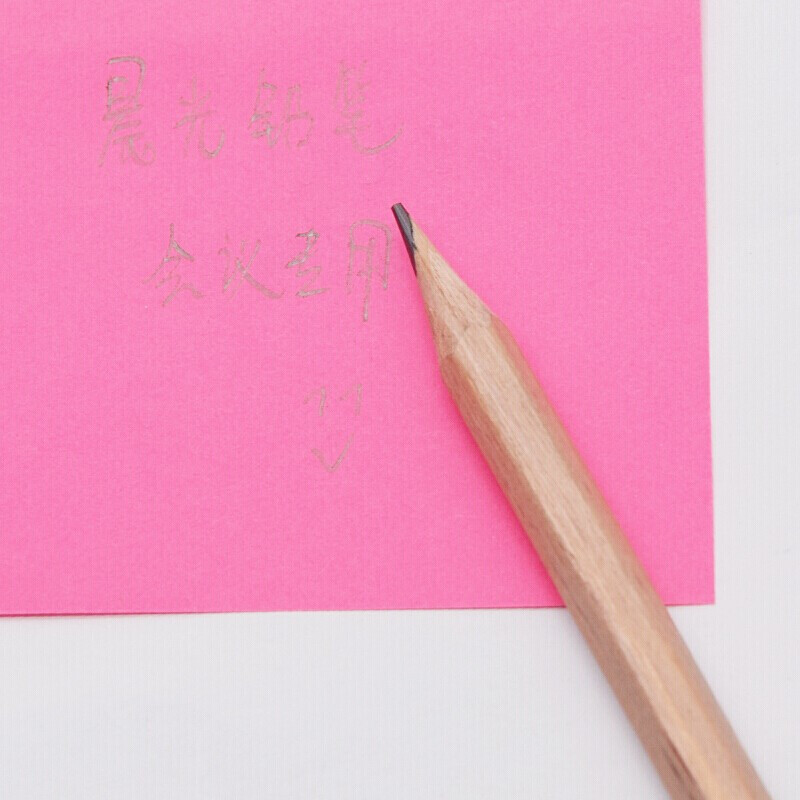 晨光铅笔
会议专用